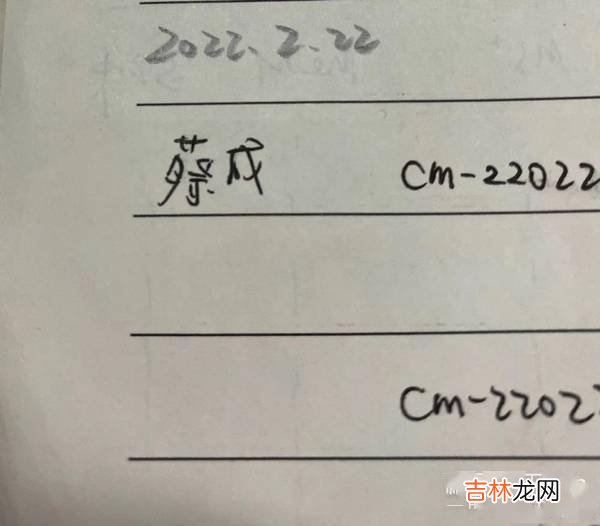 2022.2.22
蔡成 Cm-22022
Cm-22022
吉林龙网